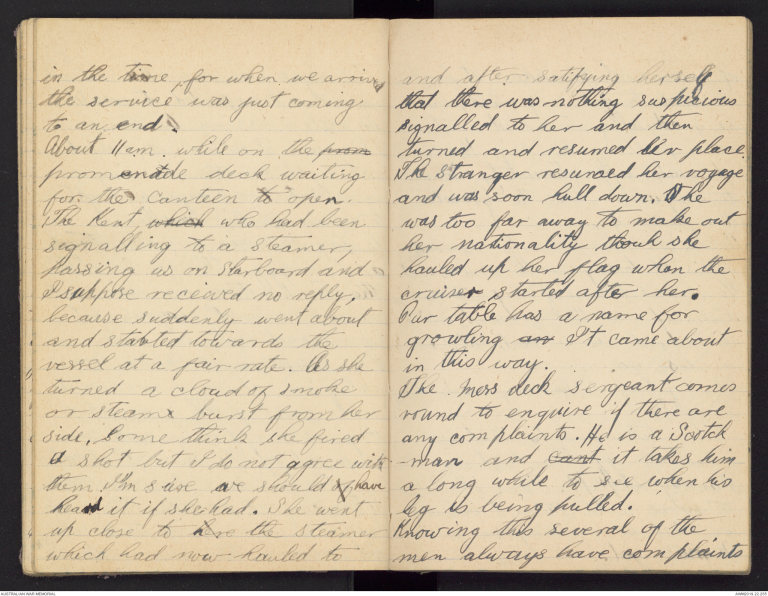 in the time, for when we arrived
the service was just coming
to an end.
About 11am while on the prom
promenade deck waiting
for the canteen to open.
The Kent which who had been
signalling to a steamer,
passing us on starboard and
I suppose received no reply,
because suddenly went about
and started towards the
vessel at a fair rate. As she
turned a cloud of smoke
or steam burst from her
side. Some think she fired
a shot but I do not agree with
them. I'm sure we should of have
heard it if she had. She went
up close to the steamer
which had now hauled to
and after satifying herself
that there was nothing suspicious
signalled to her and then
turned and resumed her place.
The stranger resumed her voyage
and was soon hull down. She
was too far away to make out
her nationality though she
hauled up her flag when the
cruiser started after her.
Our table has a name for
growling an It came about
in this way.
The Mess deck sergeant comes
round to enquire if there are
any complaints. He is a Scotch
-man and cant it takes him
a long while to see when his
leg is being pulled.
Knowing this several of the
men always have complaints
AUSTRALIAN WAR MEMORIAL